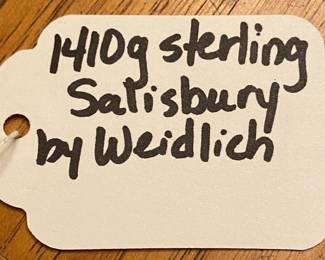 1410g sterling
Salisbury
by Weidlich